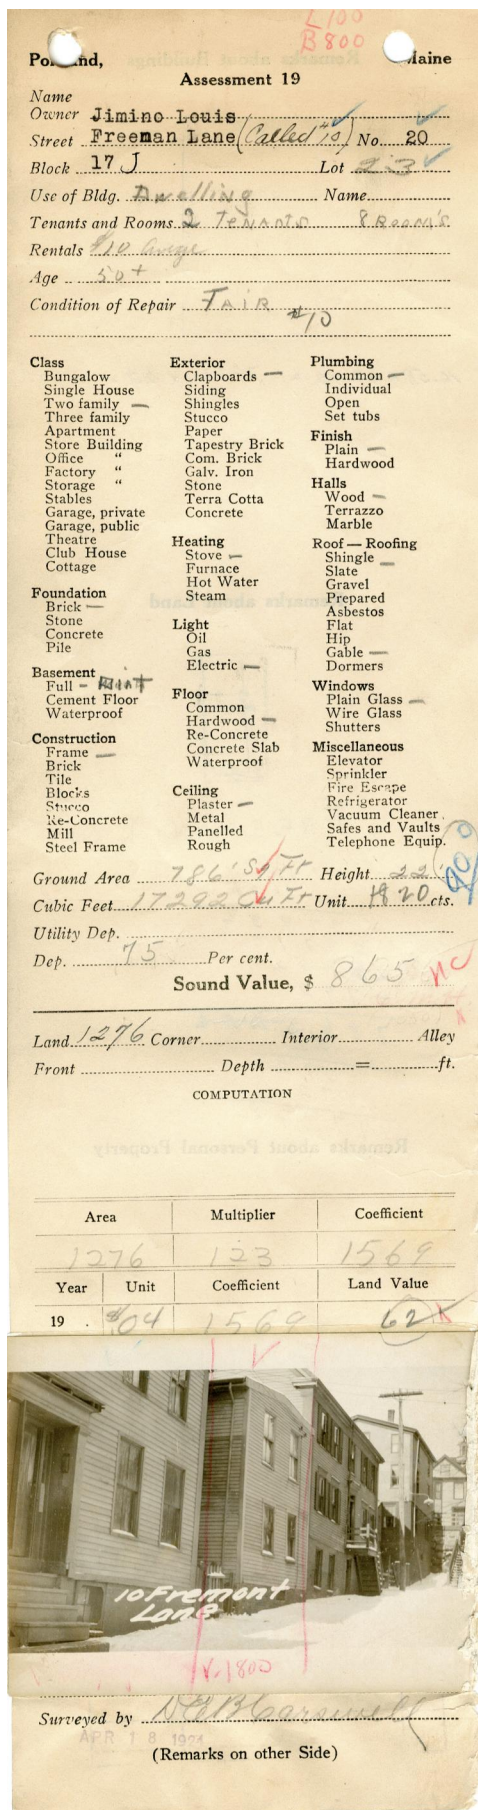 L 100
B 800
Portland, Maine
Assessment 19
Name
Owner Jimino Louis
Street Freeman Lane (Called #10) No. 20
Block 17 J Lot 23
Use of Bldg. Dwelling Name
Tenants and Rooms 2 Tenants 8 Rooms
Rentals $10 Avege
Age 50+
Condition of Repair Fair
$10
Class
Bungalow
Single House
Two family —
Three family
Apartment
Store Building
Office "
Factory "
Storage "
Stables
Garage, private
Garage, public
Theatre
Club House
Cottage
Foundation
Brick —
Stone
Concrete
Pile
Basement
Full —
Cement Floor
Waterproof
Construction
Frame —
Brick
Tile
Blocks
Stucco
Re-Concrete
Mill
Steel Frame
Exterior
Clapboards —
Siding
Shingles
Stucco
Paper
Tapestry Brick
Com. Brick
Galv. Iron
Stone
Terra Cotta
Concrete
Heating
Stove —
Furnace
Hot Water
Steam
Light
Oil
Gas
Electric —
Floor
Common
Hardwood —
Re-Concrete
Concrete Slab
Waterproof
Ceiling
Plaster —
Metal
Panelled
Rough
Plumbing
Common —
Individual
Open
Set tubs
Finish
Plain —
Hardwood
Halls
Wood —
Terrazzo
Marble
Roof — Roofing
Shingle —
Slate
Gravel
Prepared
Asbestos
Flat
Hip
Gable —
Dormers
Windows
Plain Glass —
Wire Glass
Shutters
Miscellaneous
Elevator
Sprinkler
Fire Escape
Refrigerator
Vacuum Cleaner
Safes and Vaults
Telephone Equip.
Ground Area 786' Sq Ft Height 22'
Cubic Feet 17292 Cu Ft Unit 20 cts.
Utility Dep.
Dep. 75 Per cent.
Sound Value, $ 865 NC
Land 1276 Corner Interior Alley
Front Depth = ft.
COMPUTATION
Area Multiplier Coefficient
1276 123 1569
Year Unit Coefficient Land Value
19 . $04 1569 62
10 Fremont
Lane
V-1800
Surveyed by
APR 18 1924
(Remarks on other Side)